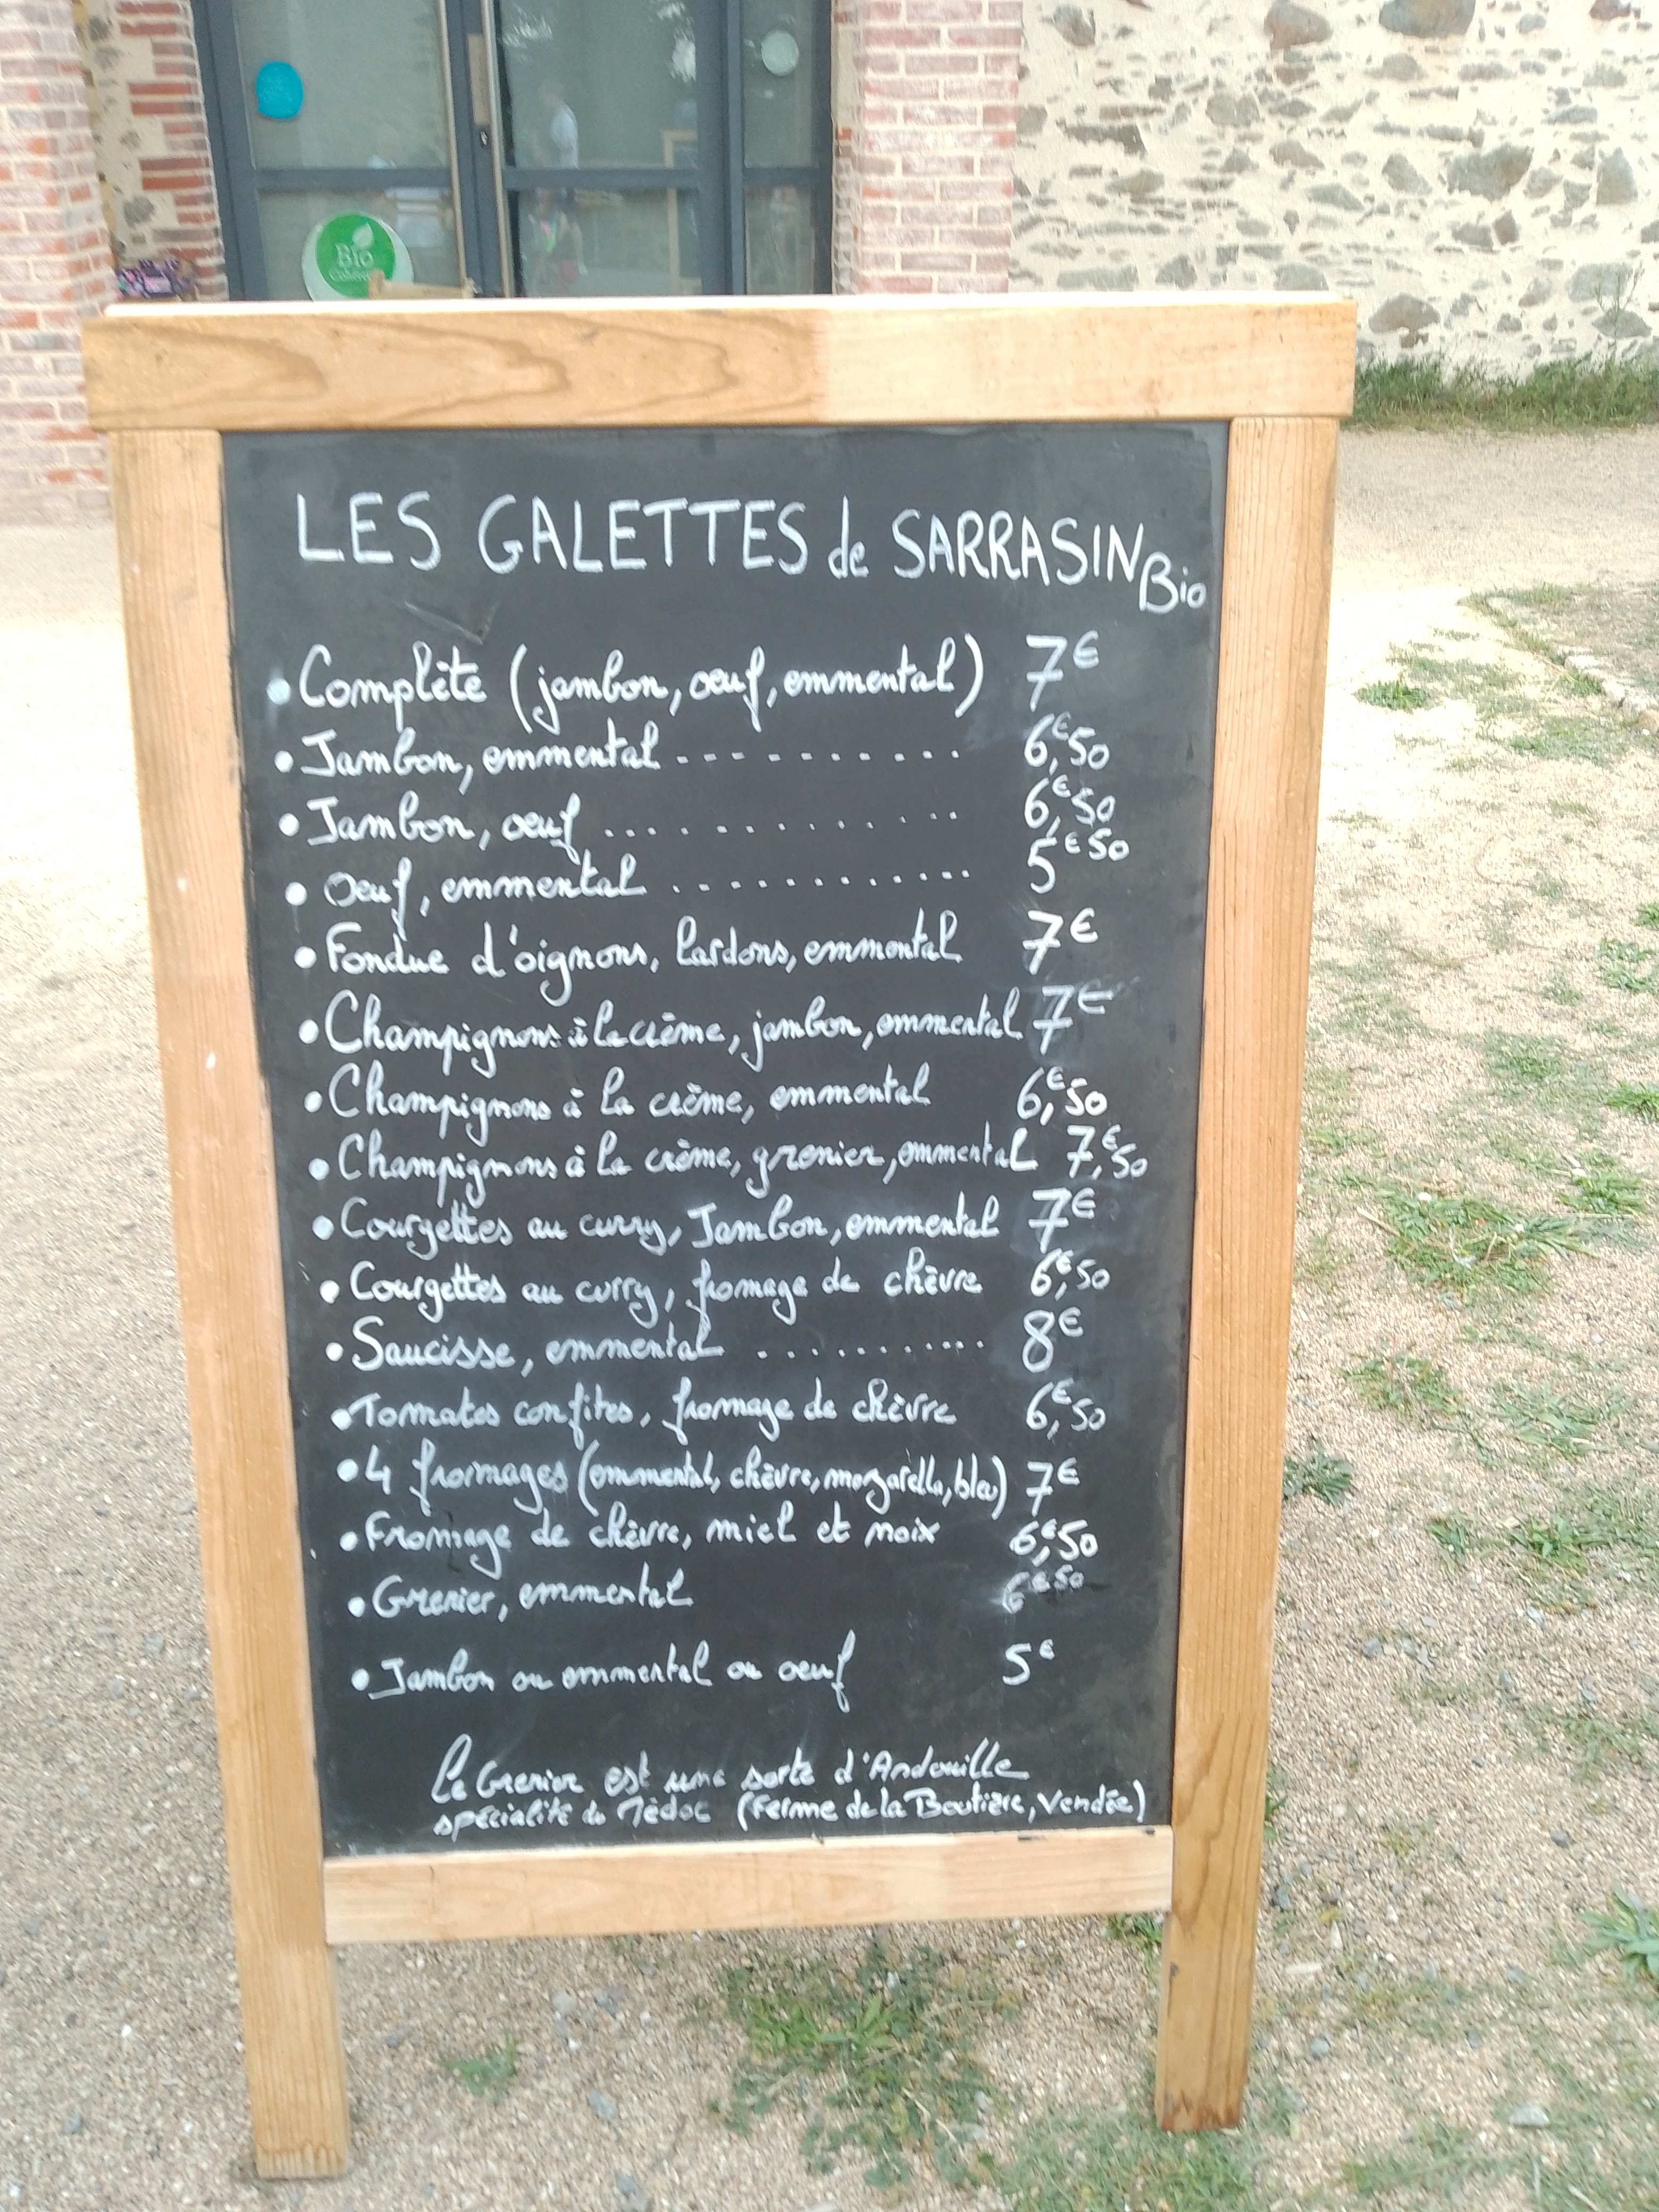 Bio
LES GALETTES de SARRASIN Bio
• Complète (jambon, oeuf, emmental) 7€
• Jambon, emmental - - - - - - - - - - 6,€50
• Jambon, oeuf .............. 6,€50
• Oeuf, emmental ............ 5€50
• Fondue d'oignons, lardons, emmental 7€
• Champignons à la crème, jambon, emmental 7€
• Champignons à la crème, emmental 6,€50
• Champignons à la crème, grenier, emmental 7,€50
• Courgettes au curry, Jambon, emmental 7€
• Courgettes au curry, fromage de chèvre 6,€50
• Saucisse, emmental .......... 8€
• Tomates confites, fromage de chèvre 6,€50
• 4 fromages (emmental, chèvre, mozarella, bleu) 7€
• Fromage de chèvre, miel et noix 6,€50
• Grenier, emmental 6€50
• Jambon ou emmental ou oeuf 5€
Le Grenier est une sorte d'Andouille
spécialité du Médoc (Ferme de la Boutière, Vendée)